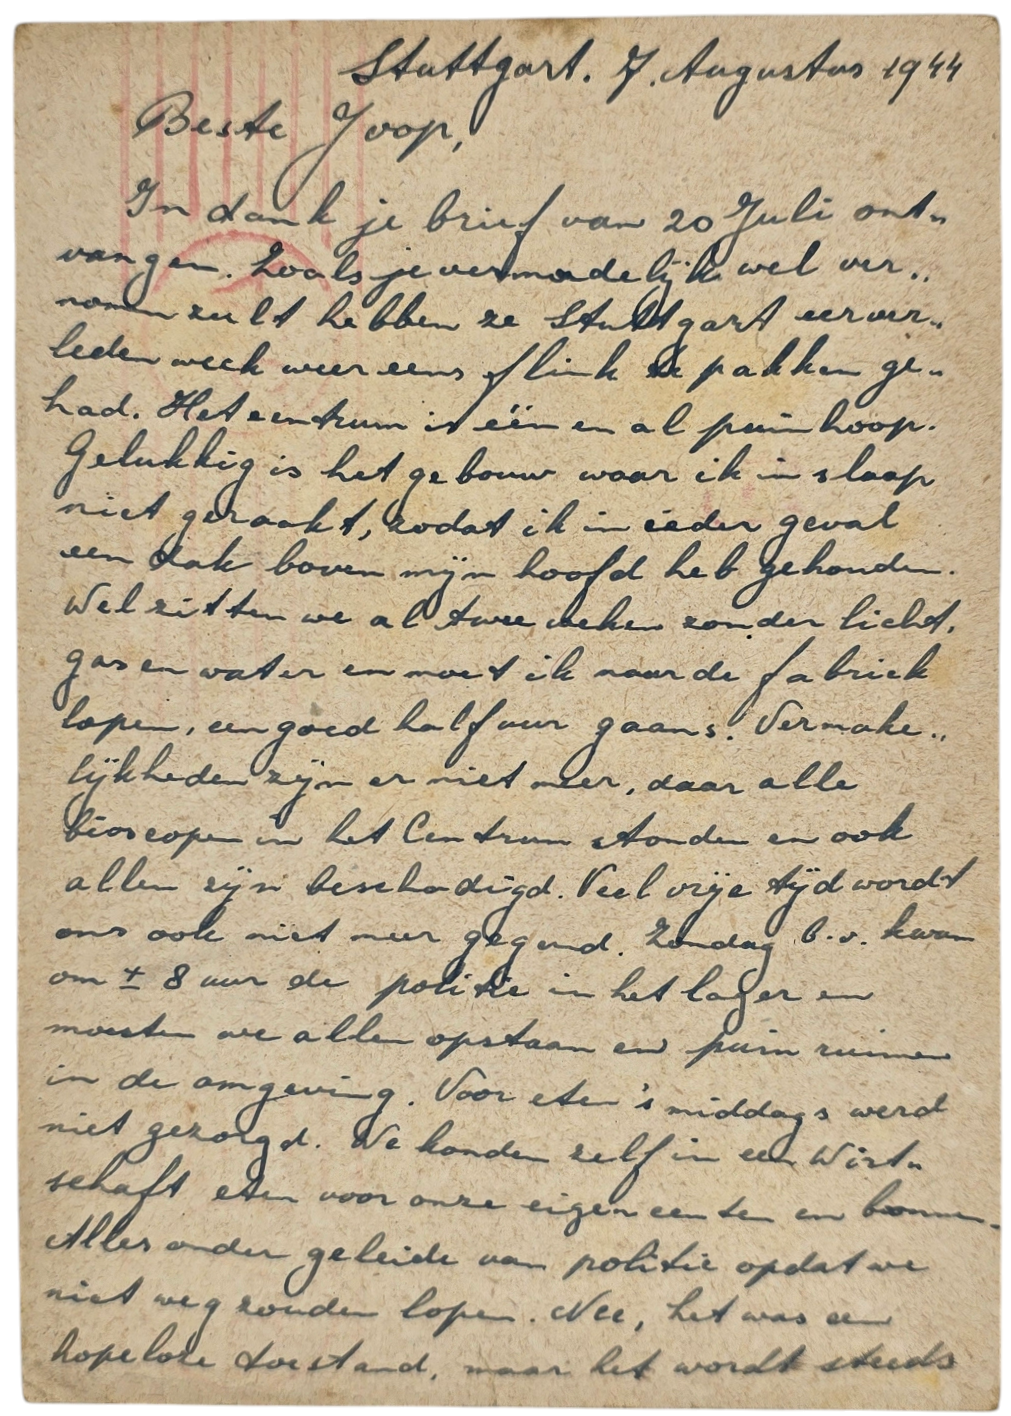 Stuttgart. 7. Augustus 1944
Beste Joop,
In dank je brief van 20 Juli ont„
vangen. Zoals je vermoedelijk wel ver„
nomen zult hebben ze Stuttgart eerver„
leden week weer eens flink te pakken ge„
had. Het centrum is één en al puinhoop.
Gelukkig is het gebouw waar ik in slaap
niet geraakt, zodat ik in ieder geval
een dak boven mijn hoofd heb gehouden.
Wel zitten we al twee weken zonder licht,
gas en water en moet ik naar de fabriek
lopen, een goed half uur gaans. Vermake„
lijkheden zijn er niet meer, daar alle
bioscopen in het Centrum stonden en ook
allen zijn beschadigd. Veel vrije tijd wordt
ons ook niet meer gegund. Zondag b.v. kwam
om ± 8 uur de politie in het lager en
moesten we allen opstaan en puin ruimen
in de omgeving. Voor eten 's middags werd
niet gezorgd. We konden zelf in een Wirt„
schaft eten voor onze eigen centen en bonnen.
Alles onder geleide van politie opdat we
niet weg zouden lopen. Nee, het was een
hopeloze toestand, maar het wordt steeds